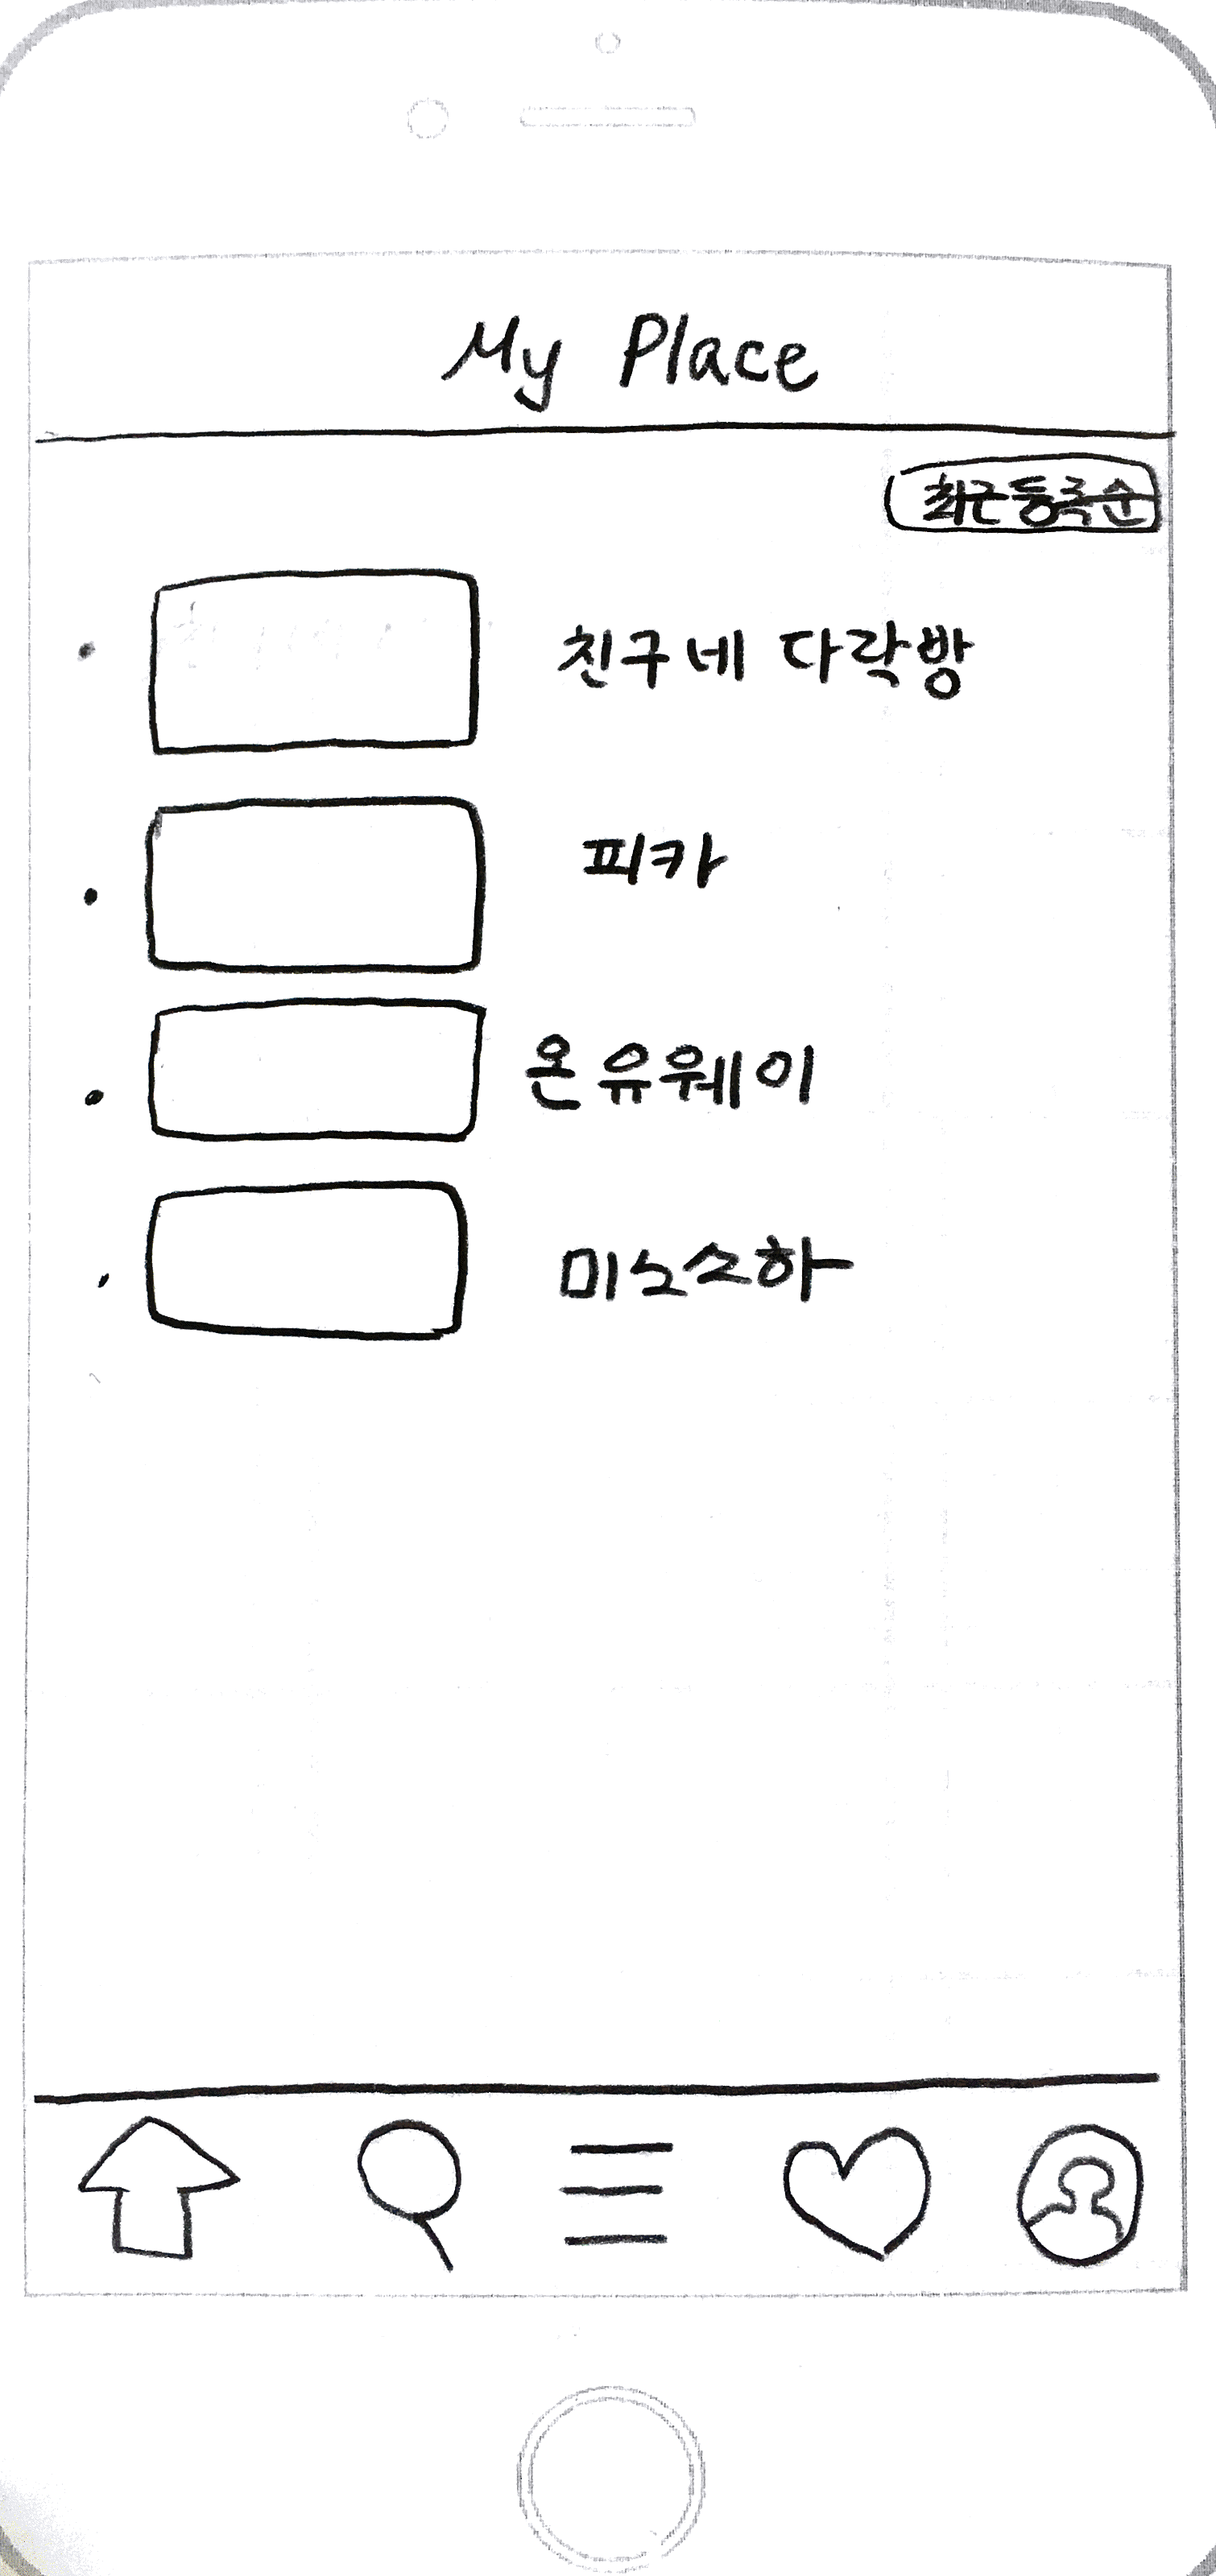 My Place
최근등록순
친구네 다락방
피카
온유웨이
미소소하